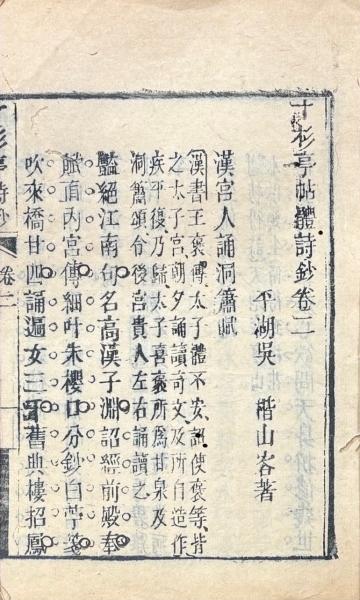 十杉亭帖體詩鈔卷二
平湖吳 楷山客著
漢宮人誦洞簫賦
漢書王褒傳太子體不安詔使褒等皆
之太子宮朝夕誦讀奇文及所自造作
疾平復乃歸太子喜褒所為甘泉及
洞簫頌令後宮貴人左右誦讀之
豔絕江南句名高漢子淵詔經前殿奉
賦直內宮傳細叶朱櫻口分鈔白苧箋
吹來橋廿四誦遍女三千舊典樓招鳳
十杉亭詩鈔 卷二